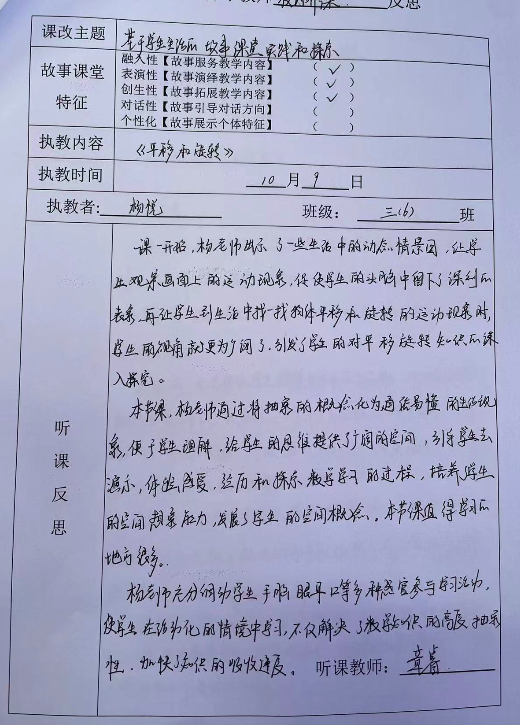 反思
课改主题 基于学生生活的故事课堂实践和探索
故事课堂特征
融入性【故事服务教学内容】 ( ✓ )
表演性【故事演绎教学内容】 ( ✓ )
创生性【故事拓展教学内容】 ( ✓ )
对话性【故事引导对话方向】 ( )
个性化【故事展示个体特征】 ( )
执教内容 《平移和旋转》
执教时间 10月9日
执教者: 杨悦 班级: 三(6)班
听课反思
课一开始,杨老师出示了一些生活中的动态情景图,让学
生观察画面上的运动现象,促使学生的头脑中留下了深刻的
表象,再让学生到生活中找一找物体平移和旋转的运动现象时,
学生的视角就更为广阔了.引发了学生的对平移旋转知识的深
入探究。
本节课,杨老师通过将抽象的概念化为通俗易懂的生活现
象,便于学生理解,给学生的思维提供了广阔的空间,引导学生去
演示,体验,感受,经历和探索数学学习的过程,培养学生
的空间想象能力,发展了学生的空间概念。本节课值得学习的
地方很多。
杨老师充分调动学生手脑眼耳口等多种感官参与学习活动,
使学生在活动化的情境中学习,不仅解决了数学知识的高度抽象
性.加快了知识的吸收进度。 听课教师: